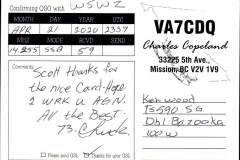 Confirming QSO with W5WZ
MONTH DAY YEAR UTC
APR 21 2020 2339
MHZ MODE RCVD SENT
14.255 SSB 59
Comments
Scott thanks for
the nice Card-Hope
2 WRK U AGN.
All the Best.
73. Chuck
Please send QSL Thanks for your QSL
VA7CDQ
Charles Copeland
33225 5th Ave.
Mission BC V2V 1V9
Kenwood
TS590 SG
Oki Bazooka
100W